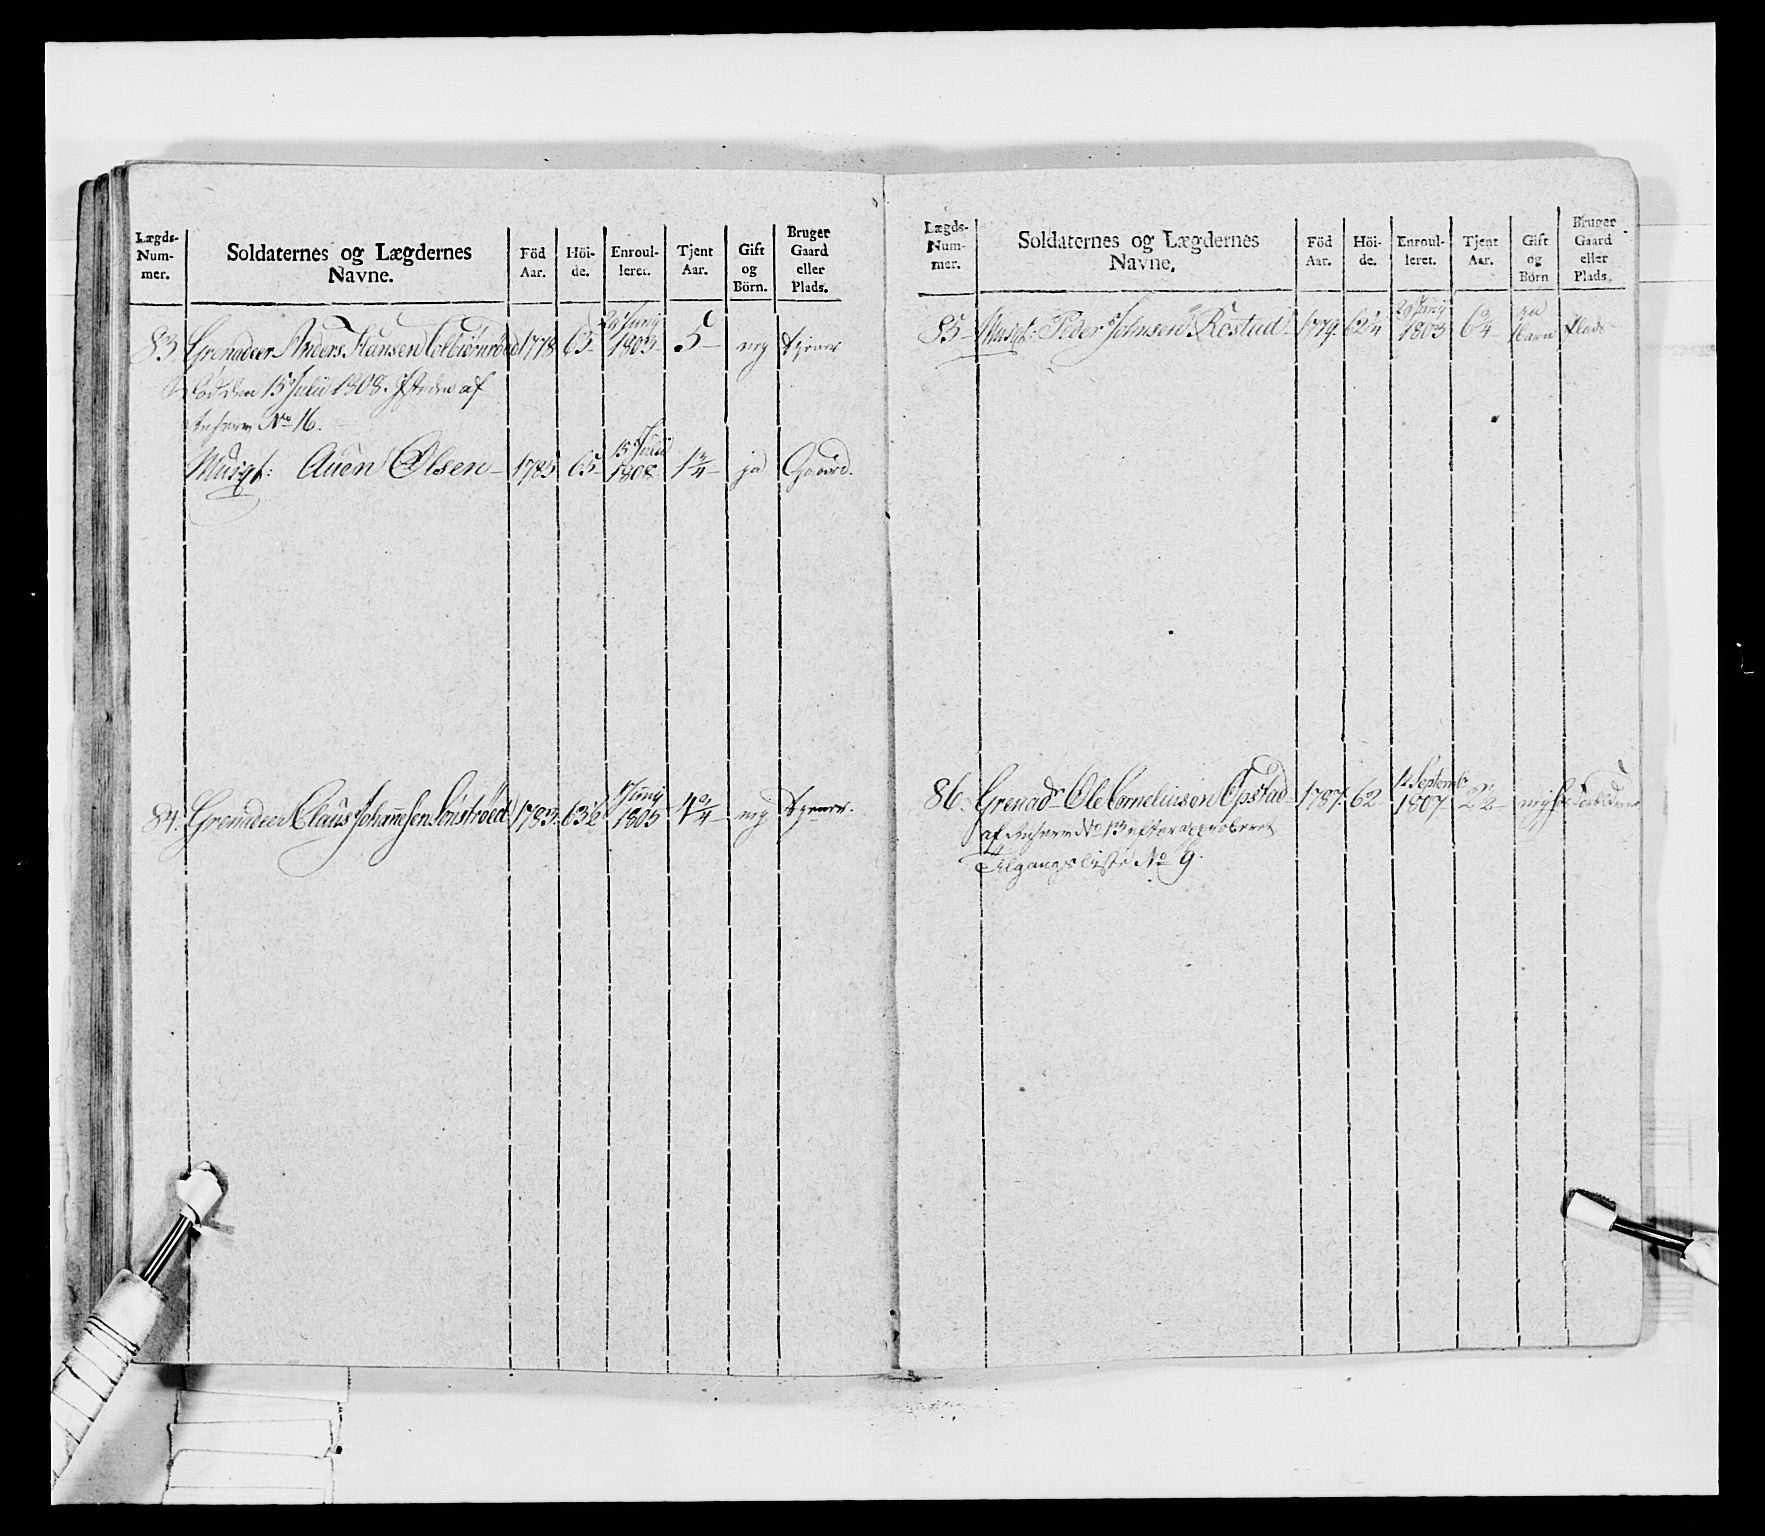 Lægds-Num-mer. Soldaternes og Lægdernes Navne. Föd Aar. Höi-de. Enroul-leret. Tjent Aar. Gift og Börn. Bruger Gaard eller Plads.
83 Grenadeer Anders Hansen 1778 63 29 Junij 1803 5 nej tjener
den 15 Julii 1808. af
No 16.
Musqt: Auen Olsen 1785 65 15 Julii 1808 1 3/4 ja Gaard.
84. Grenadeer Claus Johannsen 1783 63 1/2 Junij 1805 4 3/4 nej tjener.
Lægds-Num-mer. Soldaternes og Lægdernes Navne. Föd Aar. Höi-de. Enroul-leret. Tjent Aar. Gift og Börn Bruger Gaard eller Plads.
85 Musqt: Peder Johnsen Rostad 1779. 62 1/4 29 Junij 1803 6 3/4 ja Barn Plads
86. Grenadr Ole Corneliusen Opstad 1787. 62 12 Septembr 1807 2 1/2 nej
af No 13 efter approberet
Tilgangsliste No 9.